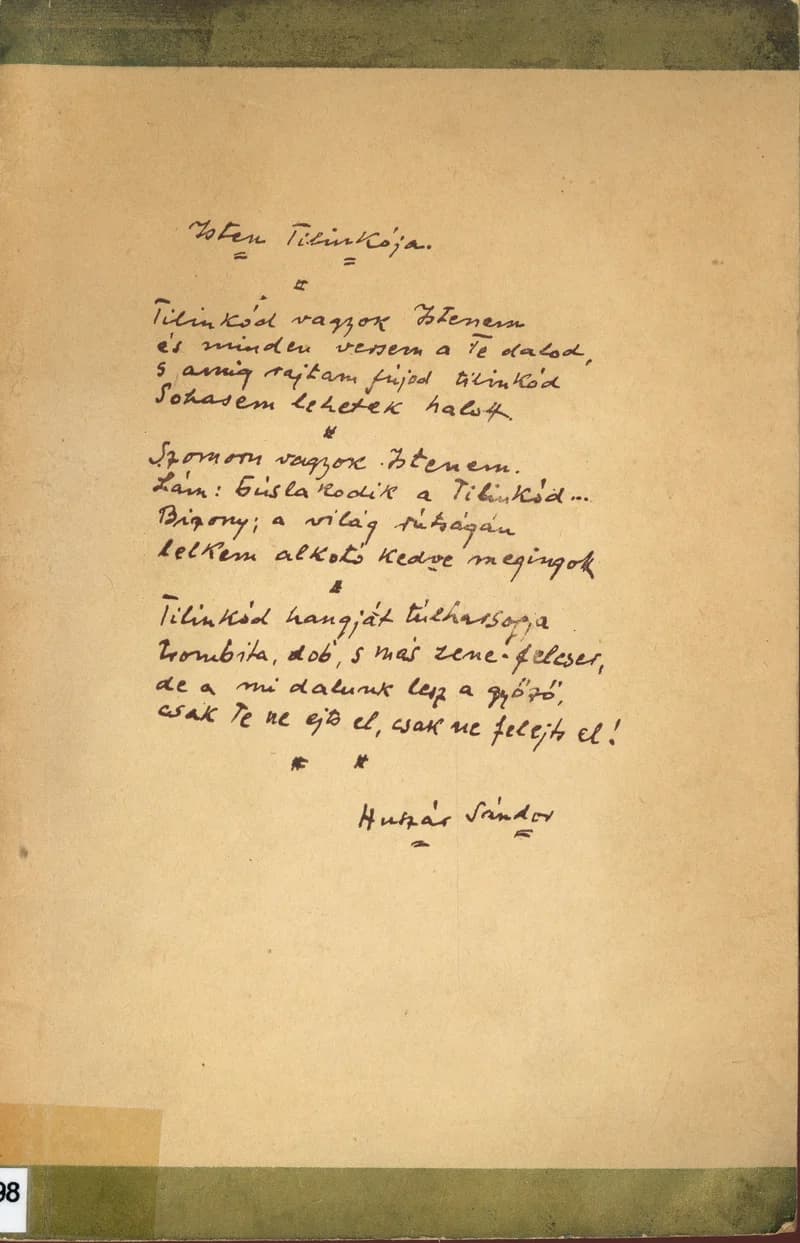 Isten Tilinkója.
Tilinkód vagyok Istenem
és minden versem a Te dalod,
s amig rajtam fújod tilinkód
Sohasem lehetek halott.
Szomorú vagyok Istenem.
Lám: búslakodik a Tilinkód...
Bizony; a világ rútságán
lelkem alkotó kedve megingott
Tilinkód hangját túlharsogja
trombita, dob, s más zene-felcser,
de a mi dalunk lesz a győző,
csak Te ne ejts el, csak ne felejts el!
Huszár Sándor
98